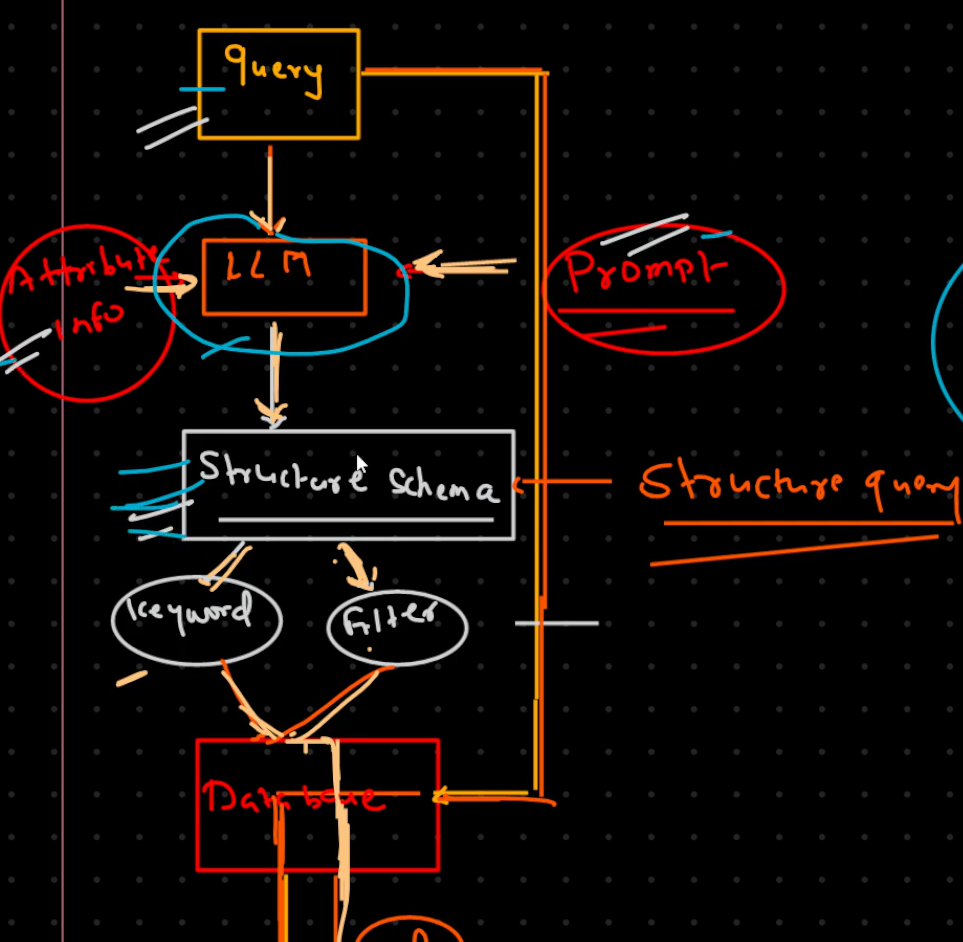 Query
LLM
Attribute
Info
Prompt
Structure Schema
Structure query
Keyword
Filter
Database